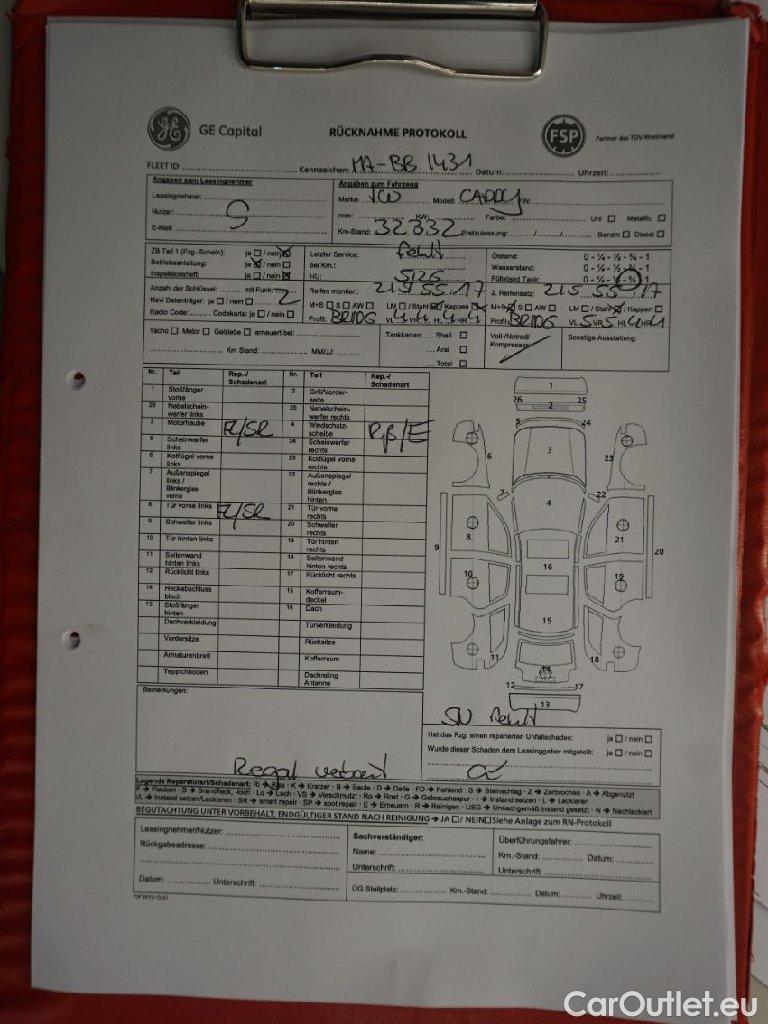 GE Capital
RÜCKNAHME PROTOKOLL
FSP
Partner des TÜV Rheinland
FLEET ID: Kennzeichen: MA-BB 1431 Datum: Uhrzeit:
Angaben zum Leasingnehmer
Leasingnehmer:
Nutzer:
E-Mail:
Angaben zum Fahrzeug
Marke: VW Modell: CADDY
KW: Farbe: Uni Metallic
Km-Stand: 32332 Erstzulassung: Benzin Diesel
ZB Teil 1 (Fzg.-Schein): ja / nein
Betriebsanleitung: ja / nein
Inspektionsheft: ja / nein
Letzter Service: fehlt
bei Km.:
HU: 5/26
Ölstand: 0 - ¼ - ½ - ¾ - 1
Wasserstand: 0 - ¼ - ½ - ¾ - 1
Füllstand Tank: 0 - ¼ - ½ - ¾ - 1
Anzahl der Schlüssel: mit Funk: 2
Navi Datenträger: ja / nein
Radio Code: Codekarte: ja / nein
Reifen montiert: 215 55 17
M+S S AW LM / Stahl / Kappen
Profil: BRIDG VL 4 VR 4 HL 4 HR 4
2. Reifensatz: 215 55 17
M+S S AW LM / Stahl / Kappen
Profil: BRIDG VL 5 VR 5 HL 4 HR 4
Tacho Motor Getriebe erneuert bei:
Km Stand: MM/JJ:
Tankkarten: Shell
Aral
Total
Voll-/Notrad/
Kompressor:
Sonstige Ausstattung:
Nr. Teil Rep.-/ Schadenart Nr. Teil Rep.-/ Schadenart
1 Stoßfänger vorne 2 Grill/Vorderseite
25 Nebelscheinwerfer links 26 Nebelscheinwerfer rechts
3 Motorhaube 4 Windschutzscheibe
5 Scheinwerfer links 24 Scheinwerfer rechts
6 Kotflügel vorne links 23 Kotflügel vorne rechts
7 Außenspiegel links / Blinkerglas vorne 22 Außenspiegel rechts / Blinkerglas hinten
8 Tür vorne links 21 Tür vorne rechts
9 Schweller links 20 Schweller rechts
10 Tür hinten links 19 Tür hinten rechts
11 Seitenwand hinten links 18 Seitenwand hinten rechts
12 Rücklicht links 17 Rücklicht rechts
14 Heckabschlussblech 15 Kofferraumdeckel
13 Stoßfänger hinten 16 Dach
Dachverkleidung Türverkleidung
Vordersitze Rücksitze
Armaturenbrett Kofferraum
Teppichboden Dachreling Antenne
1
26 25
2
5 24
3
6
23
7
22
4
8
21
9
20
16
10
19
15
11
18
14
12 17
13
Bemerkungen:
Regal verbaut
Hat das Fzg. einen reparierten Unfallschaden: ja / nein
Wurde dieser Schaden dem Leasinggeber mitgeteilt: ja / nein
Legende Reparaturart/Schadenart: Ri → Riss · K → Kratzer · B → Beule · D → Delle · FD → Fehlend · S → Steinschlag · Z → Zerbrochen · A → Abgenutzt
F → Flecken · B → Brandfleck, -loch · Lo → Loch · VS → Verschmutz · Ro → Rost · G → Gebrauchsspur · I → Instand setzen · L → Lackieren
I/L → Instand setzen/Lackieren · SR → smart repair · SP → spot repair · E → Erneuern · R → Reinigen · USG → Unsachgemäß instand gesetzt · N → Nachlackiert
BEGUTACHTUNG UNTER VORBEHALT; ENDGÜLTIGER STAND NACH REINIGUNG → JA / NEIN Siehe Anlage zum RN-Protokoll
Leasingnehmer/Nutzer:
Rückgabeadresse:
Datum: Unterschrift:
Sachverständiger:
Name:
Unterschrift:
Überführungsfahrer:
Km.-Stand: Datum:
Unterschrift:
ÜG Stellplatz: Km.-Stand: Datum: Uhrzeit:
CarOutlet.eu